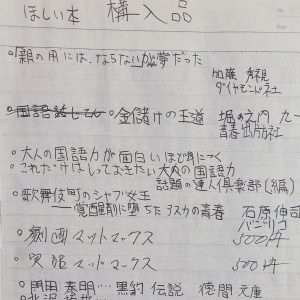 ほしい本 構入品
親の用には、ならないが夢だった
加藤 諦視
ダイヤモンド社
国語 金儲けの王道 堀の内 九一
青春出版社
大人の国語力が面白いほど身につく
されだけはしっておきたい大人の国語力
話題の達人倶楽部(編)
歌舞伎町のシャブ女王
覚醒剤に堕ちたアスカの青春 石原伸司
バジリコ
劇画マットマックス 500円
実報マットマックス 500円
門田 泰明… 黒豹伝説 徳間文庫